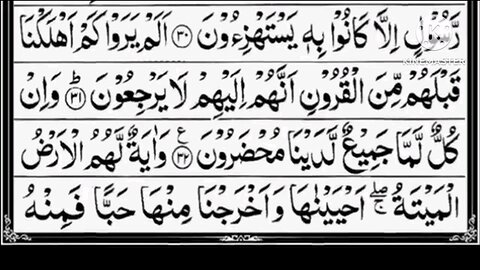 رَّسُوۡلٍ اِلَّا كَانُوۡا بِهٖ يَسۡتَهۡزِءُوۡنَ ۳۰ اَلَمۡ يَرَوۡا كَمۡ اَهۡلَكۡنَا
KINEMASTER
قَبۡلَهُمۡ مِّنَ الۡقُرُوۡنِ اَنَّهُمۡ اِلَيۡهِمۡ لَا يَرۡجِعُوۡنَ ؕ ۳۱ وَاِنۡ
كُلٌّ لَّمَّا جَمِيۡعٌ لَّدَيۡنَا مُحۡضَرُوۡنَ ۳۲ ع وَاٰيَةٌ لَّهُمُ الۡاَرۡضُ
الۡمَيۡتَةُ ۖۚ اَحۡيَيۡنٰهَا وَاَخۡرَجۡنَا مِنۡهَا حَبًّا فَمِنۡهُ